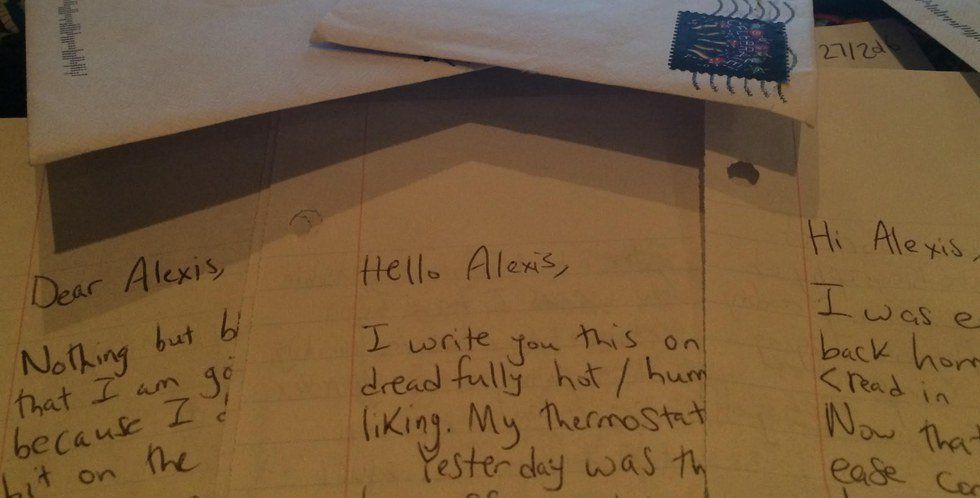 27/2
Dear Alexis,
Nothing but b
that I am go
because I
bit on the
Hello Alexis,
I write you this on
dreadfully hot / hum
liking. My thermostat
Yesterday was th
Hi Alexis,
I was e
back hom
<read in
Now that
ease co